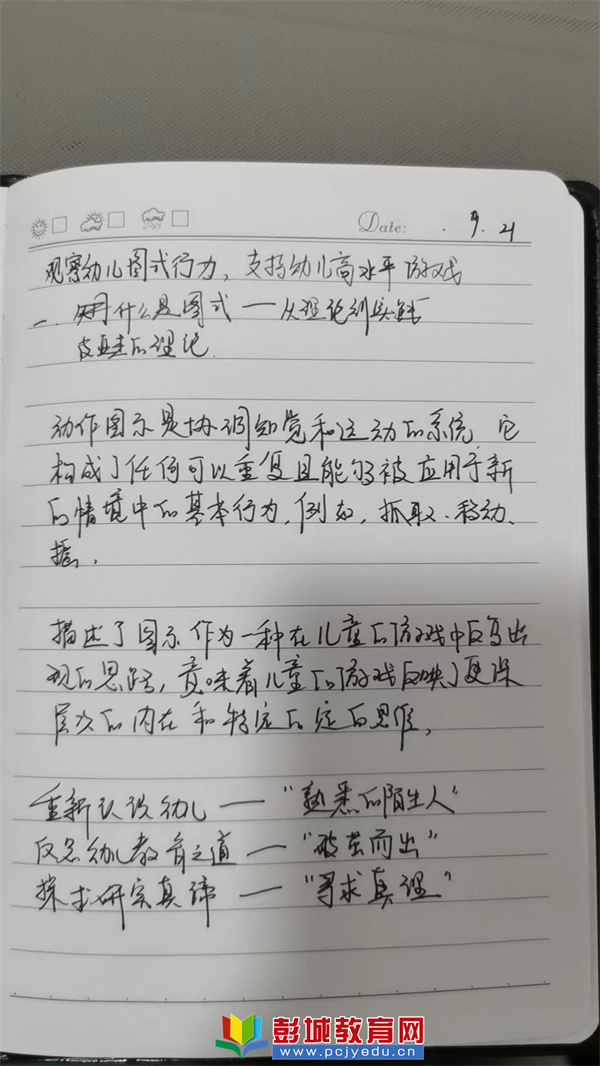 Date: . 9. 21
观察幼儿图式行为，支持幼儿高水平游戏
一. 什么是图式 — 从理论到实践
皮亚杰的理论.
动作图示是协调知觉和运动的系统, 它
构成了任何可以重复且能够被应用于新
的情境中的基本行为, 例如, 抓取、移动、
摇.
描述了图示作为一种在儿童的游戏中反复出
现的思路, 意味着儿童的游戏反映了更深
层次的内在和特定的思维,
重新认识幼儿 — "熟悉的陌生人"
反思幼儿教育之道 — "破茧而出"
探求研究真谛 — "寻求真理"
彭城教育网
www.pcjyedu.cn